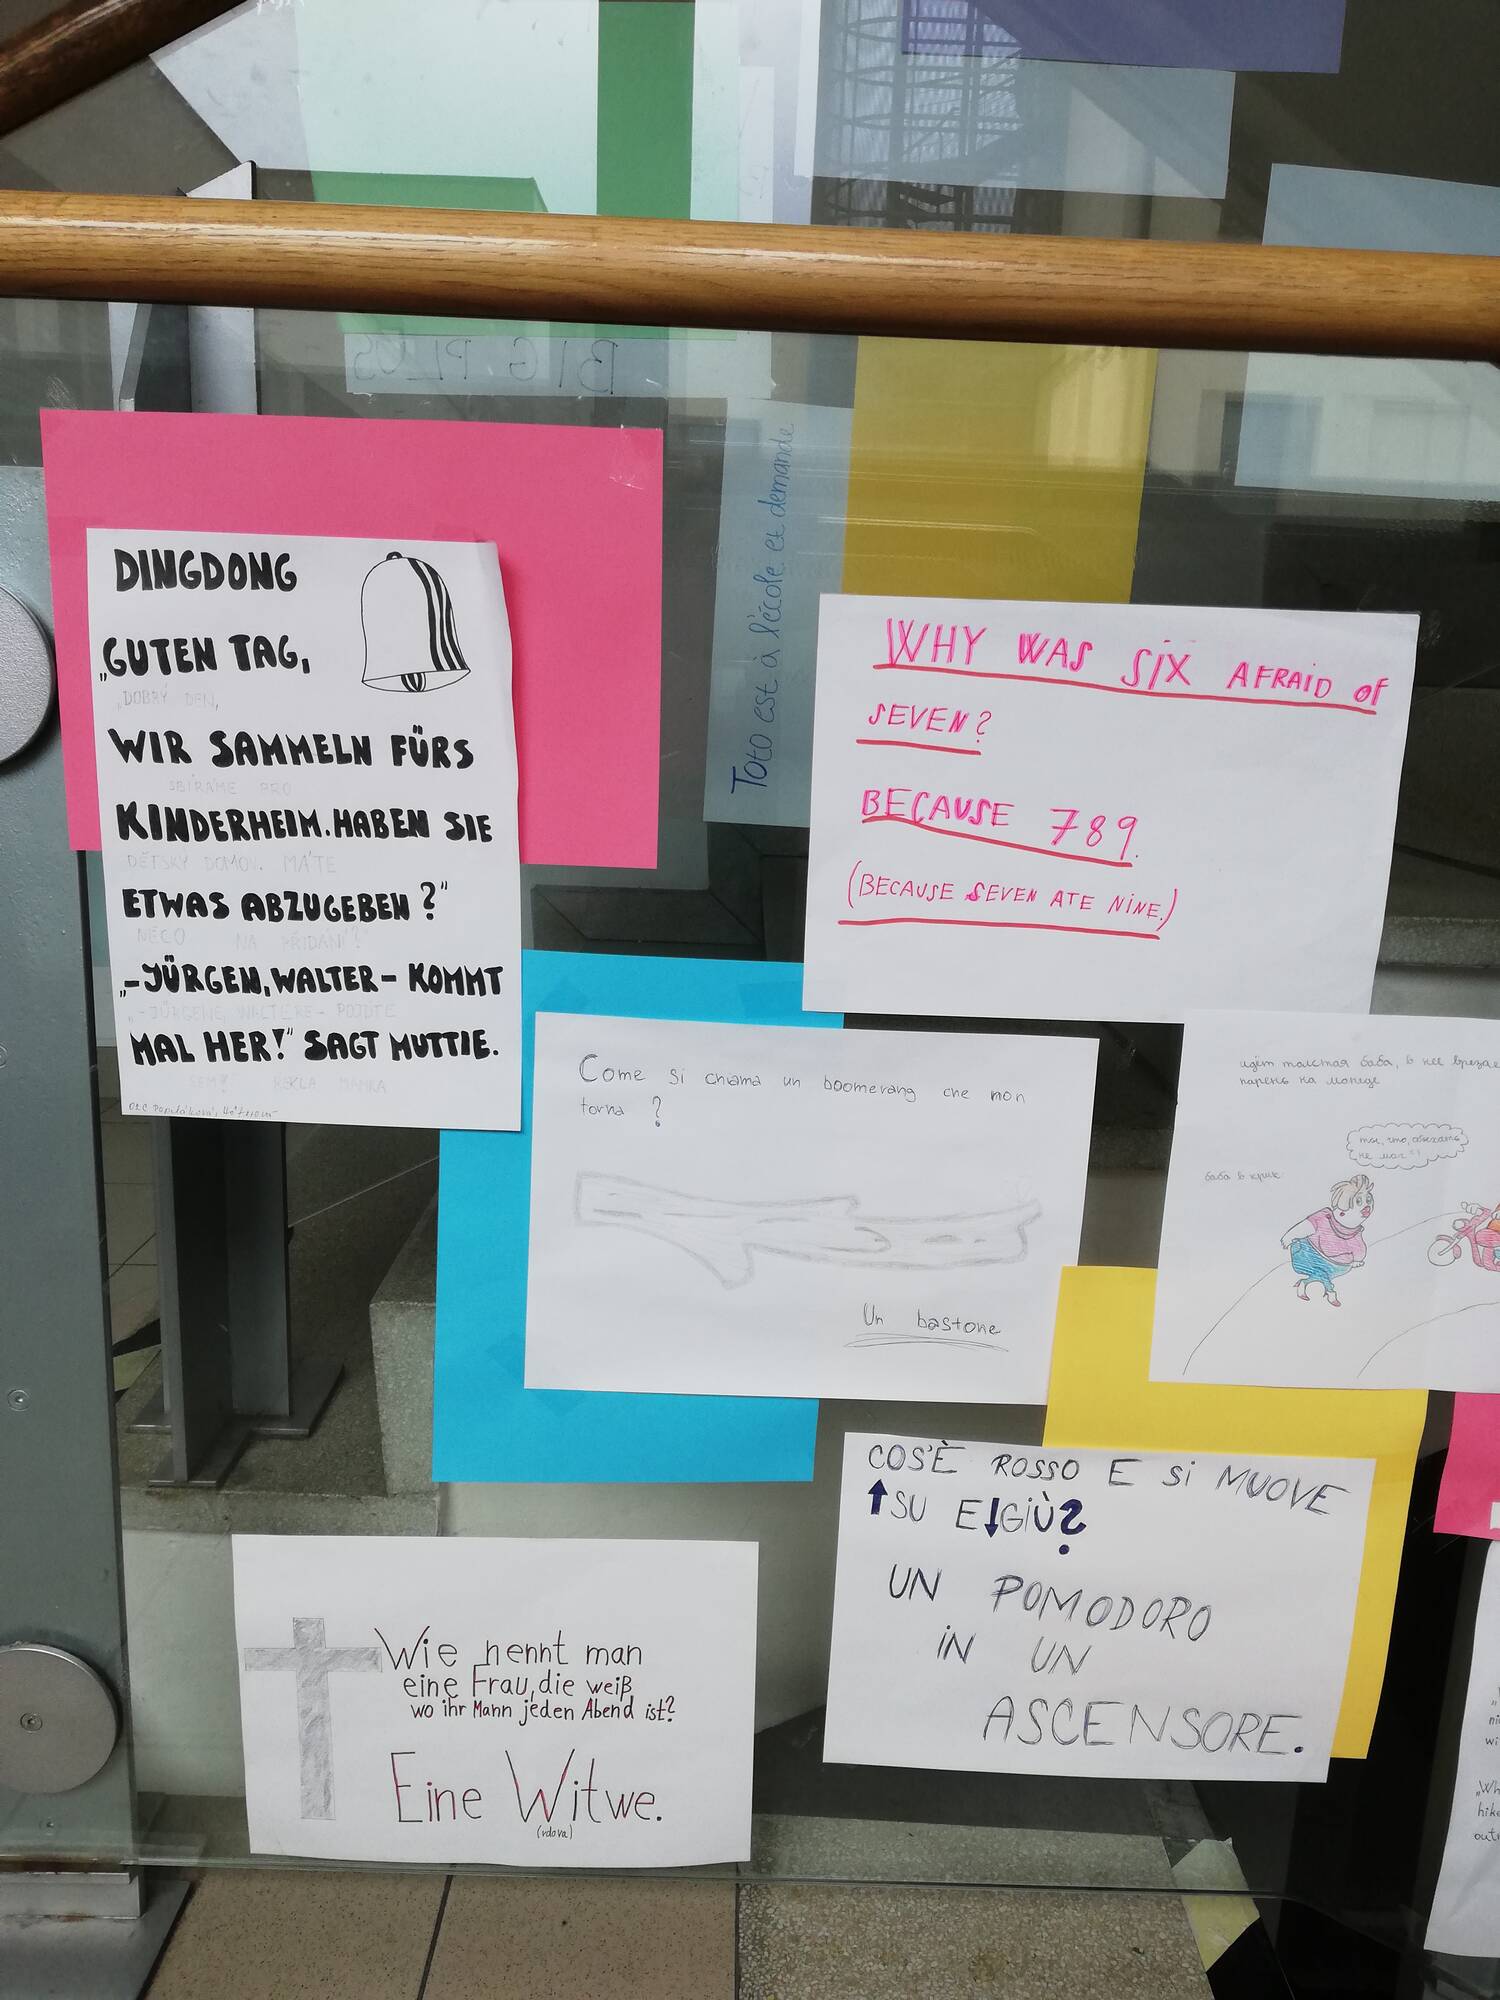 BIG PLUS
Toto est à l'école et demande
DINGDONG
„GUTEN TAG,
„DOBRÝ DEN,
WIR SAMMELN FÜRS
SBÍRÁME PRO
KINDERHEIM. HABEN SIE
DĚTSKÝ DOMOV. MÁTE
ETWAS ABZUGEBEN?"
NĚCO NA PŘIDÁNÍ?"
„-JÜRGEN, WALTER- KOMMT
„-JÜRGENE, WALTERE- POJĎTE
MAL HER!" SAGT MUTTIE.
SEM!" ŘEKLA MAMKA
WHY WAS SIX AFRAID OF
SEVEN?
BECAUSE 789.
(BECAUSE SEVEN ATE NINE.)
Come si chiama un boomerang che non
torna?
Un bastone
идёт толстая баба, в нее
парень на мопеде
баба в крик:
не мог?!
COS'È ROSSO E SI MUOVE
↑SU E↓GIÙ?
UN POMODORO
IN UN
ASCENSORE.
Wie nennt man
eine Frau, die weiß
wo ihr Mann jeden Abend ist?
Eine Witwe.
(vdova)
„Wh
hike